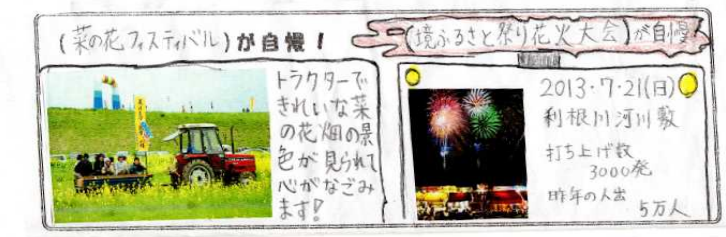 (菜の花フィスティバル)が自慢!
トラクターで
きれいな菜
の花畑の景
色が見られて
心がなごみ
ます!
(境ふるさと祭り花火大会)が自慢
2013・7・21(日)
利根川河川敷
打ち上げ数
3000発
昨年の人出
5万人